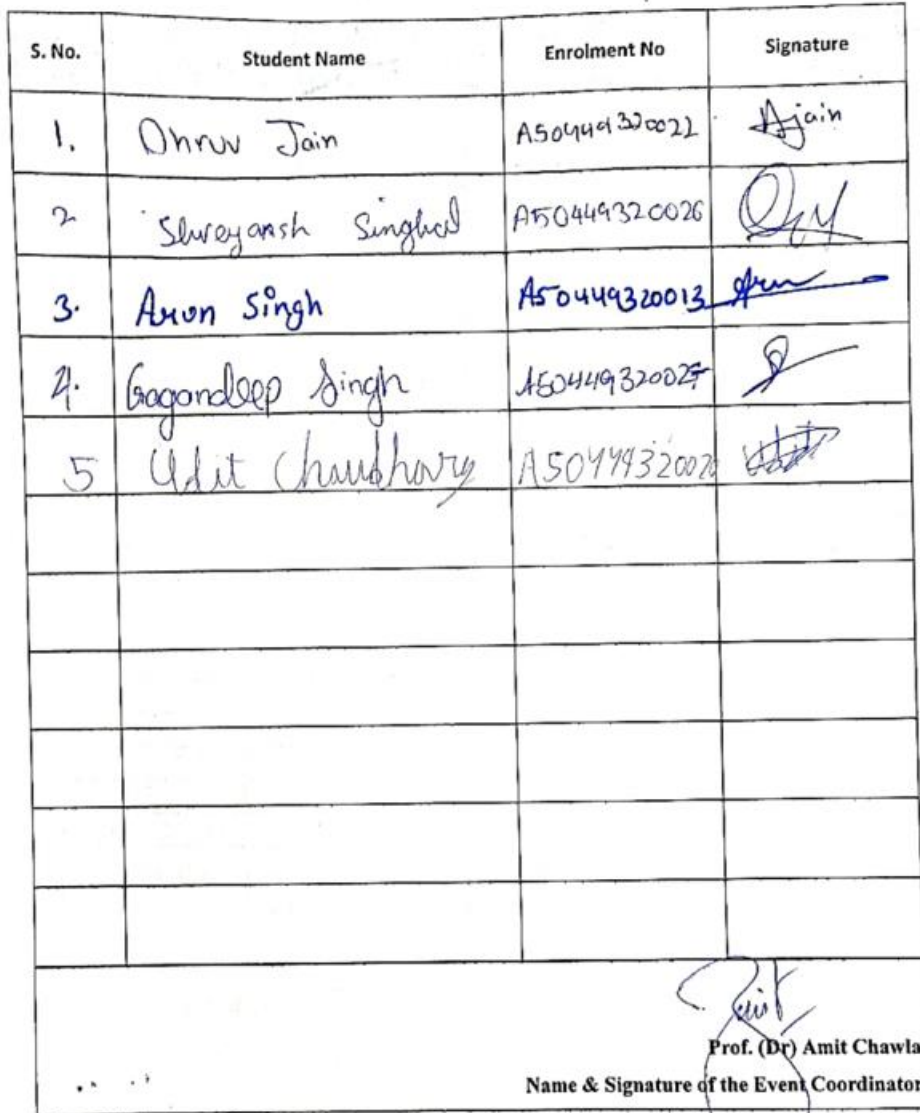 S. No. Student Name Enrolment No Signature
1. Dhruv Jain A50449320022 Ajain
2 Shreyansh Singhal A50449320026
3. Arun Singh A50449320013 Arun
4. Gagandeep Singh A50449320027
5 Udit Chaudhary
Prof. (Dr) Amit Chawla
Name & Signature of the Event Coordinator